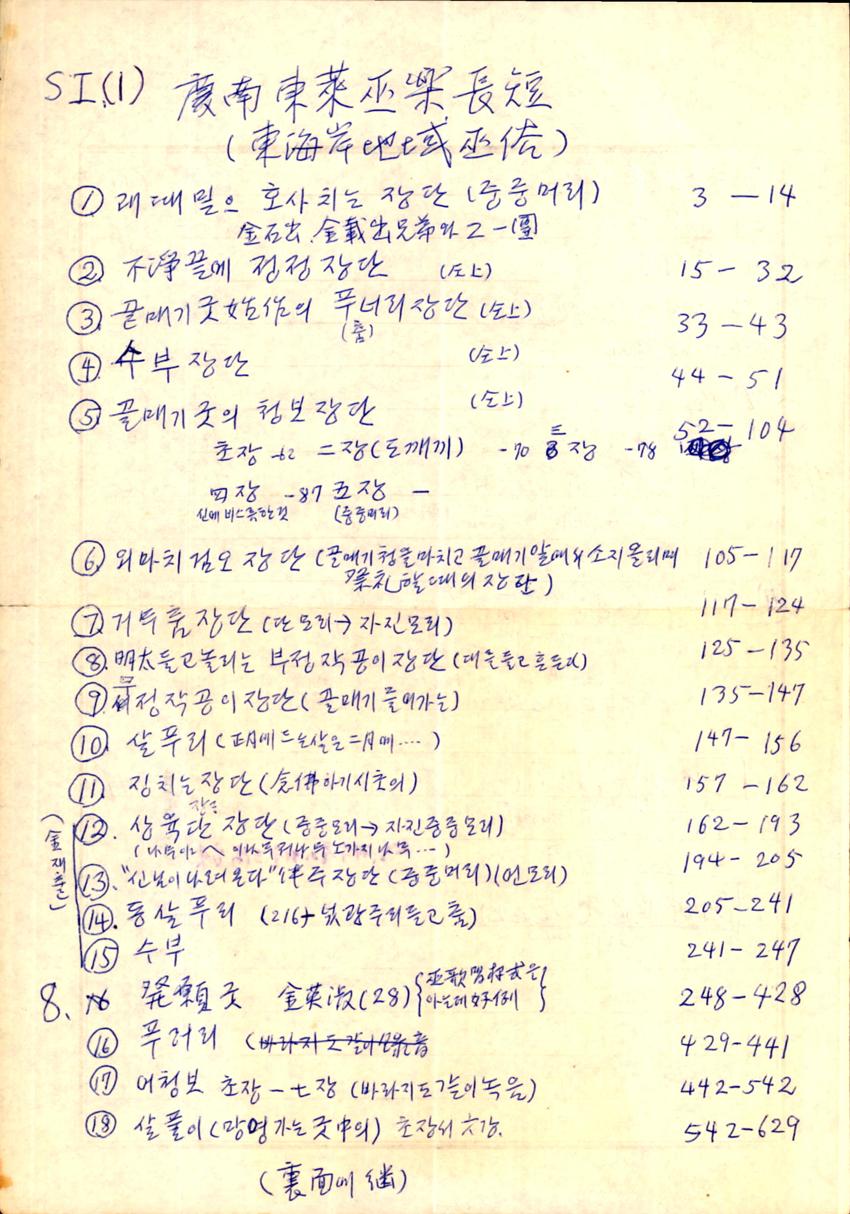 SI.(1) 慶南東萊巫樂長短
(東海岸地域巫俗)
① 래때밀으 호사치는 장단 (중중머리) 3 — 14
金石出, 金載出兄弟와 그 一團
② 不淨끝에 정정장단 (仝上) 15 - 32
③ 끝매기굿始作의 푸너리장단 (仝上) 33 — 43
(춤)
④ 수부장단 (仝上) 44 - 51
⑤ 끝매기굿의 청보장단 (仝上) 52 - 104
초장 -62 二장(도깨끼) -70 三장 -78
四장 -87 五장 —
신에 비스름한것 (중중머리)
⑥ 외마치검오 장단 (끝매기청을마치고 끝매기앞에서 소지올리며 105 - 117
祭礼할때의 장단)
⑦ 거무춤장단 (단모리→자진모리) 117 - 124
⑧ 明太들고놀리는 부정작공이장단 (대를들고흔든다) 125 - 135
⑨ 부정작공이장단 (끝매기들어가는) 135 - 147
⑩ 살푸리 (正月에드는살은 二月에 ....) 147 - 156
⑪ 징치는장단 (念佛하기시초의) 157 - 162
⑫. 상육단 장단 (중중모리→자진중중모리) 162 - 193
⑬. "신님이나려온다" 伴주장단 (중중머리)(언모리) 194 - 205
(金재출)
⑭. 동살푸리 (216+ 넋광주리들고춤) 205 - 241
⑮ 수부 241 - 247
8. 発願굿 金英淑(28) {巫歌唱好式은 248 - 428
아는데 好例}
⑯ 푸너리 (바라지도같이錄音 429 - 441
⑰ 어청보 초장 - 七장 (바라지도같이녹음) 442 - 542
⑱ 살풀이 (망영가는굿中의) 초장서 六강. 542 - 629
(裏面에 継)